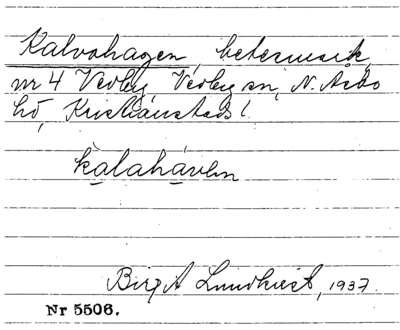 Kalvahagen, betesmark,
nr 4 Vedby, Vedby sn, N. Åsbo
hd, Kristianstads l.
kalahávhn
Birgit Lundkvist, 1937.
Nr 5506.